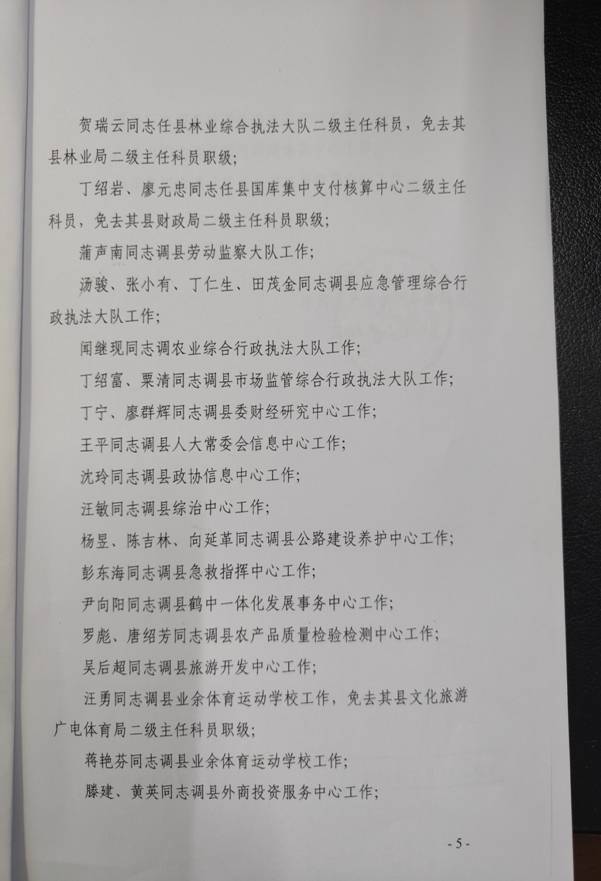 贺瑞云同志任县林业综合执法大队二级主任科员，免去其
县林业局二级主任科员职级；
丁绍岩、廖元忠同志任县国库集中支付核算中心二级主任
科员，免去其县财政局二级主任科员职级；
蒲声南同志调县劳动监察大队工作；
汤骏、张小有、丁仁生、田茂金同志调县应急管理综合行
政执法大队工作；
闻继现同志调农业综合行政执法大队工作；
丁绍富、粟清同志调县市场监管综合行政执法大队工作；
丁宁、廖群辉同志调县委财经研究中心工作；
王平同志调县人大常委会信息中心工作；
沈玲同志调县政协信息中心工作；
汪敏同志调县综治中心工作；
杨昱、陈吉林、向延革同志调县公路建设养护中心工作；
彭东海同志调县急救指挥中心工作；
尹向阳同志调县鹤中一体化发展事务中心工作；
罗彪、唐绍芳同志调县农产品质量检验检测中心工作；
吴后超同志调县旅游开发中心工作；
汪勇同志调县业余体育运动学校工作，免去其县文化旅游
广电体育局二级主任科员职级；
蒋艳芬同志调县业余体育运动学校工作；
滕建、黄英同志调县外商投资服务中心工作；
- 5 -